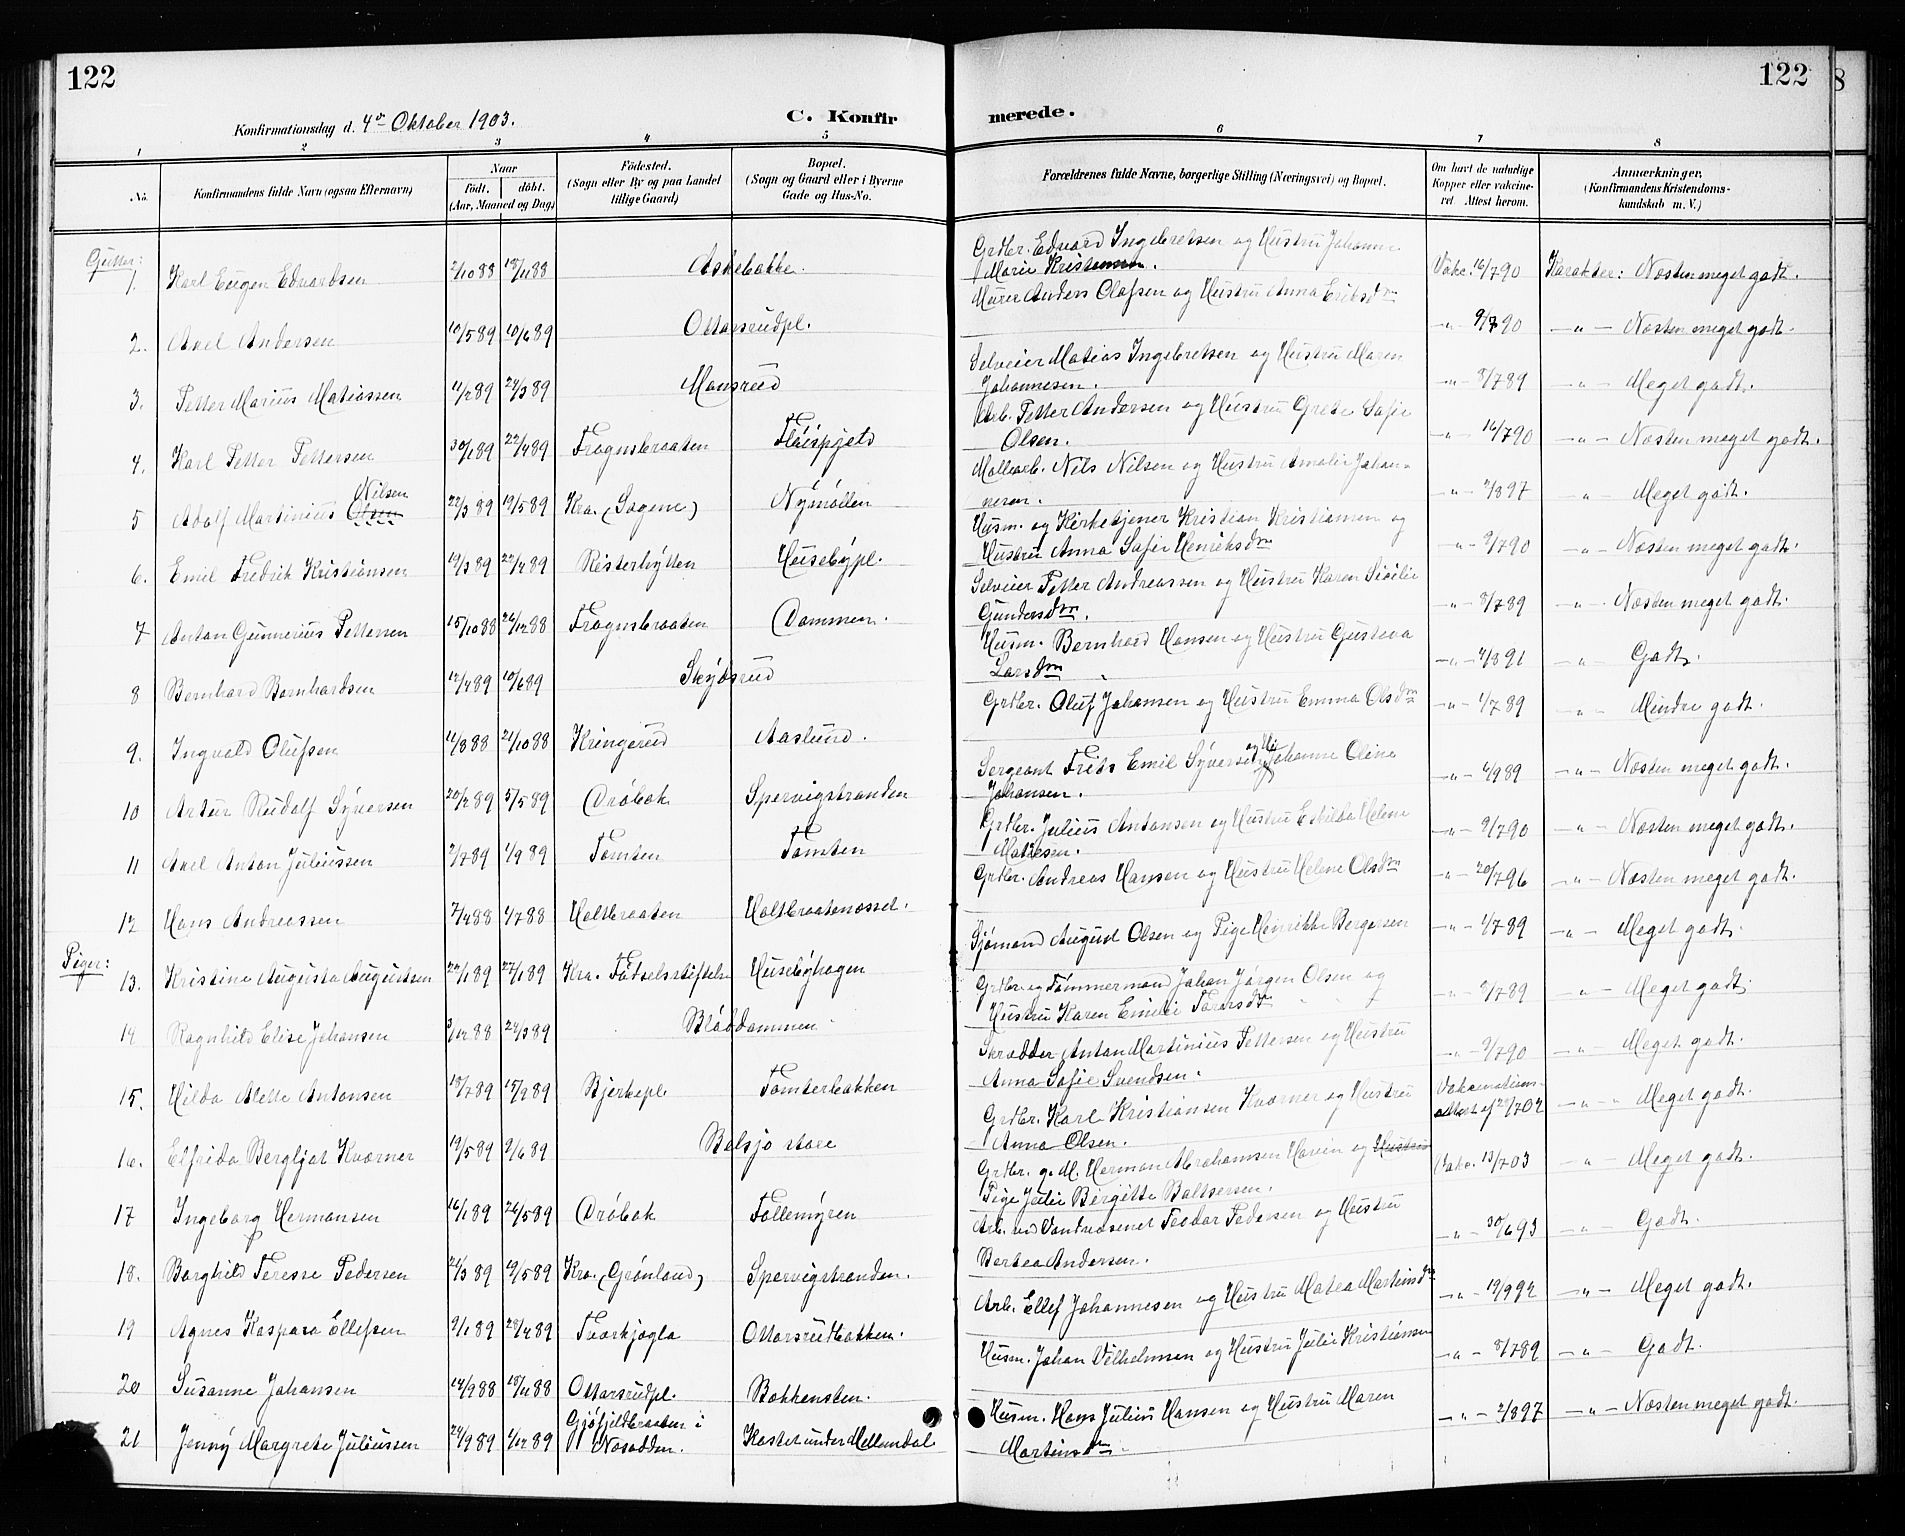 122
122
8
Konfirmationsdag d. 4de Oktober 1903.
C. Konfir
merede.
1 2 3 4 5 6 7 8
No.
Konfirmandens fulde Navn (ogsaa Efternavn)
Naar
födt. döbt.
(Aar, Maaned og Dag)
Födested.
(Sogn eller By og paa Landet
tillige Gaard)
Bopæl.
(Sogn og Gaard eller i Byerne
Gade og Hus-No.
Forældrenes fulde Navne, borgerlige Stilling (Næringsvei) og Bopæl.
Om havt de naturlige
Kopper eller vakcine-
ret. Attest herom.
Anmærkninger.
(Konfirmandens Kristendoms-
kundskab m. V.)
Gutter:
1. Karl Eugen Edvardsen 2/10 88 18/11 88 Askebakke. Grdbr. Edvard Ingebretsen og Hustru Johanne
Marie Kristensen. Vakc. 16/7 90 Karakter: Næsten meget godt.
2. Axel Andersen 10/5 89 10/6 89 Ottarsrudpl. Murer Anders Olafsen og Hustru Anna Eriksdtr -"- 9/7 90 -"- Næsten meget godt.
3. Petter Marius Matiassen 11/2 89 24/3 89 Mansrud Selveier Matias Ingebretsen og Hustru Maren
Johannesen. -"- 8/7 89 -"- Meget godt.
4. Karl Petter Pettersen 30/1 89 22/4 89 Frognsbraaten Flaispjeld Arb. Petter Andersen og Hustru Grete Sofie
Olsen. -"- 16/7 90 -"- Næsten meget godt.
5 Adolf Martinius Olsen Nilsen 22/3 89 19/5 89 Kra. (Sagene) Nymöllen Mölleab. Nils Nilsen og Hustru Amalie Johan-
nesen. -"- 2/8 97 " Meget godt.
6. Emil Fredrik Kristiansen 19/3 89 22/4 89 Risterhytten Husebypl. Husm. og Kirketjener Kristian Kristiansen og
Hustru Anna Sofie Henriksdtr -"- 9/7 90 -"- Næsten meget godt.
7 Anton Gunnerius Pettersen 15/10 88 26/12 88 Frognsbraaten Dammen. Selveier Petter Andreassen og Hustru Karen Sicilie
Gundersdtr. -"- 8/7 89 -"- Næsten meget godt.
8 Bernhard Bernhardsen 12/4 89 10/6 89 Skydsrud Husm. Bernhard Hansen og Hustru Gustava
Larsdtr -"- 4/8 91 -"- Godt.
9. Ingvald Olufsen 11/8 88 21/10 88 Kringerud Aaslund. Grdbr. Oluf Johansen og Hustru Emma Olsdtr -"- 1/7 89 -"- Mindre godt.
10 Artur Rudolf Syversen 20/2 89 5/5 89 Dröbak Spervigstranden Sergeant Frits Emil Syversen og Hu Johanne Olina
Johansen. -"- 6/9 89 -"- Næsten meget godt.
11 Axel Anton Juliussen 2/7 89 1/9 89 Tomten Tomten Grdbr. Julius Antonsen og Hustru Eskilda Helene
Matiesen. -"- 9/7 90 -"- Næsten meget godt.
12 Hans Andreassen 7/4 88 1/7 88 Holtbraaten Holtbraatenæsset. Grdbr. Andreas Hansen og Hustru Helene Olsdtr -"- 20/7 96 -"- Næsten meget godt.
Piger:
13. Kristine Augusta Augustsen 24/1 89 27/1 89 Kra. Födselsstiftelse Husebyhagen Sjömand August Olsen og Pige Henrikke Bergersen -"- 1/7 89 -"- Meget godt.
14 Ragnhild Elise Johansen 3/12 88 24/3 89 Bladdammen Grdbr. og Tömmermand Johan Jörgen Olsen og
Hustru Karen Emilie Torersdtr -"- 8/7 89 -"- Meget godt.
15. Hilda Alette Antonsen 18/7 89 15/9 89 Bjerkepl Tomterbakken Skrædder Anton Martinius Pettersen og Hustru
Anna Sofie Svendsen. -"- 9/7 90 -"- Meget godt.
16. Elfrida Bergljot Kværner 19/5 89 9/6 89 Bølsjø store Grdbr. Karl Kristiansen Kværner og Hustru
Anna Olsen. Vakcinations-
attest af 29/7 02 -"- Meget godt.
17 Ingeborg Hermansen 16/1 89 26/5 89 Dröbak Follemyren Grdbr. g. M. Herman Abrahamsen Haven og Hustru
Pige Julie Birgitte Baltsersen. Vakc. 13/7 03 -"- Meget godt.
18. Borghild Terese Pedersen 24/3 89 19/5 89 Kra. (Grönland) Spervigstranden. Arb. ved Vandvæsenet Teodor Pedersen og Hustru
Bertea Andersen. -"- 30/6 93 -"- Godt.
19 Agnes Kaspara Ellefsen 9/1 89 28/4 89 Tverkjøgla Ottarsrudbakken. Arb. Ellef Johannesen og Hustru Matea Martinsdtr -"- 19/9 92 -"- Meget godt.
20 Susanne Johansen 14/9 88 18/11 88 Ottarsrudpl. Bakkensten. Husm. Johan Vilhelmsen og Hustru Julie Kristiansen -"- 8/7 89 -"- Godt.
21 Jenny Margrete Juliussen 24/9 89 1/12 89 Gjöfjeldbraaten i
Næsodden. Kastet under Mellemdal Husm. Hans Julius Hansen og Hustru Maren
Martinsdtr. -"- 2/8 97 -"- Næsten meget godt.